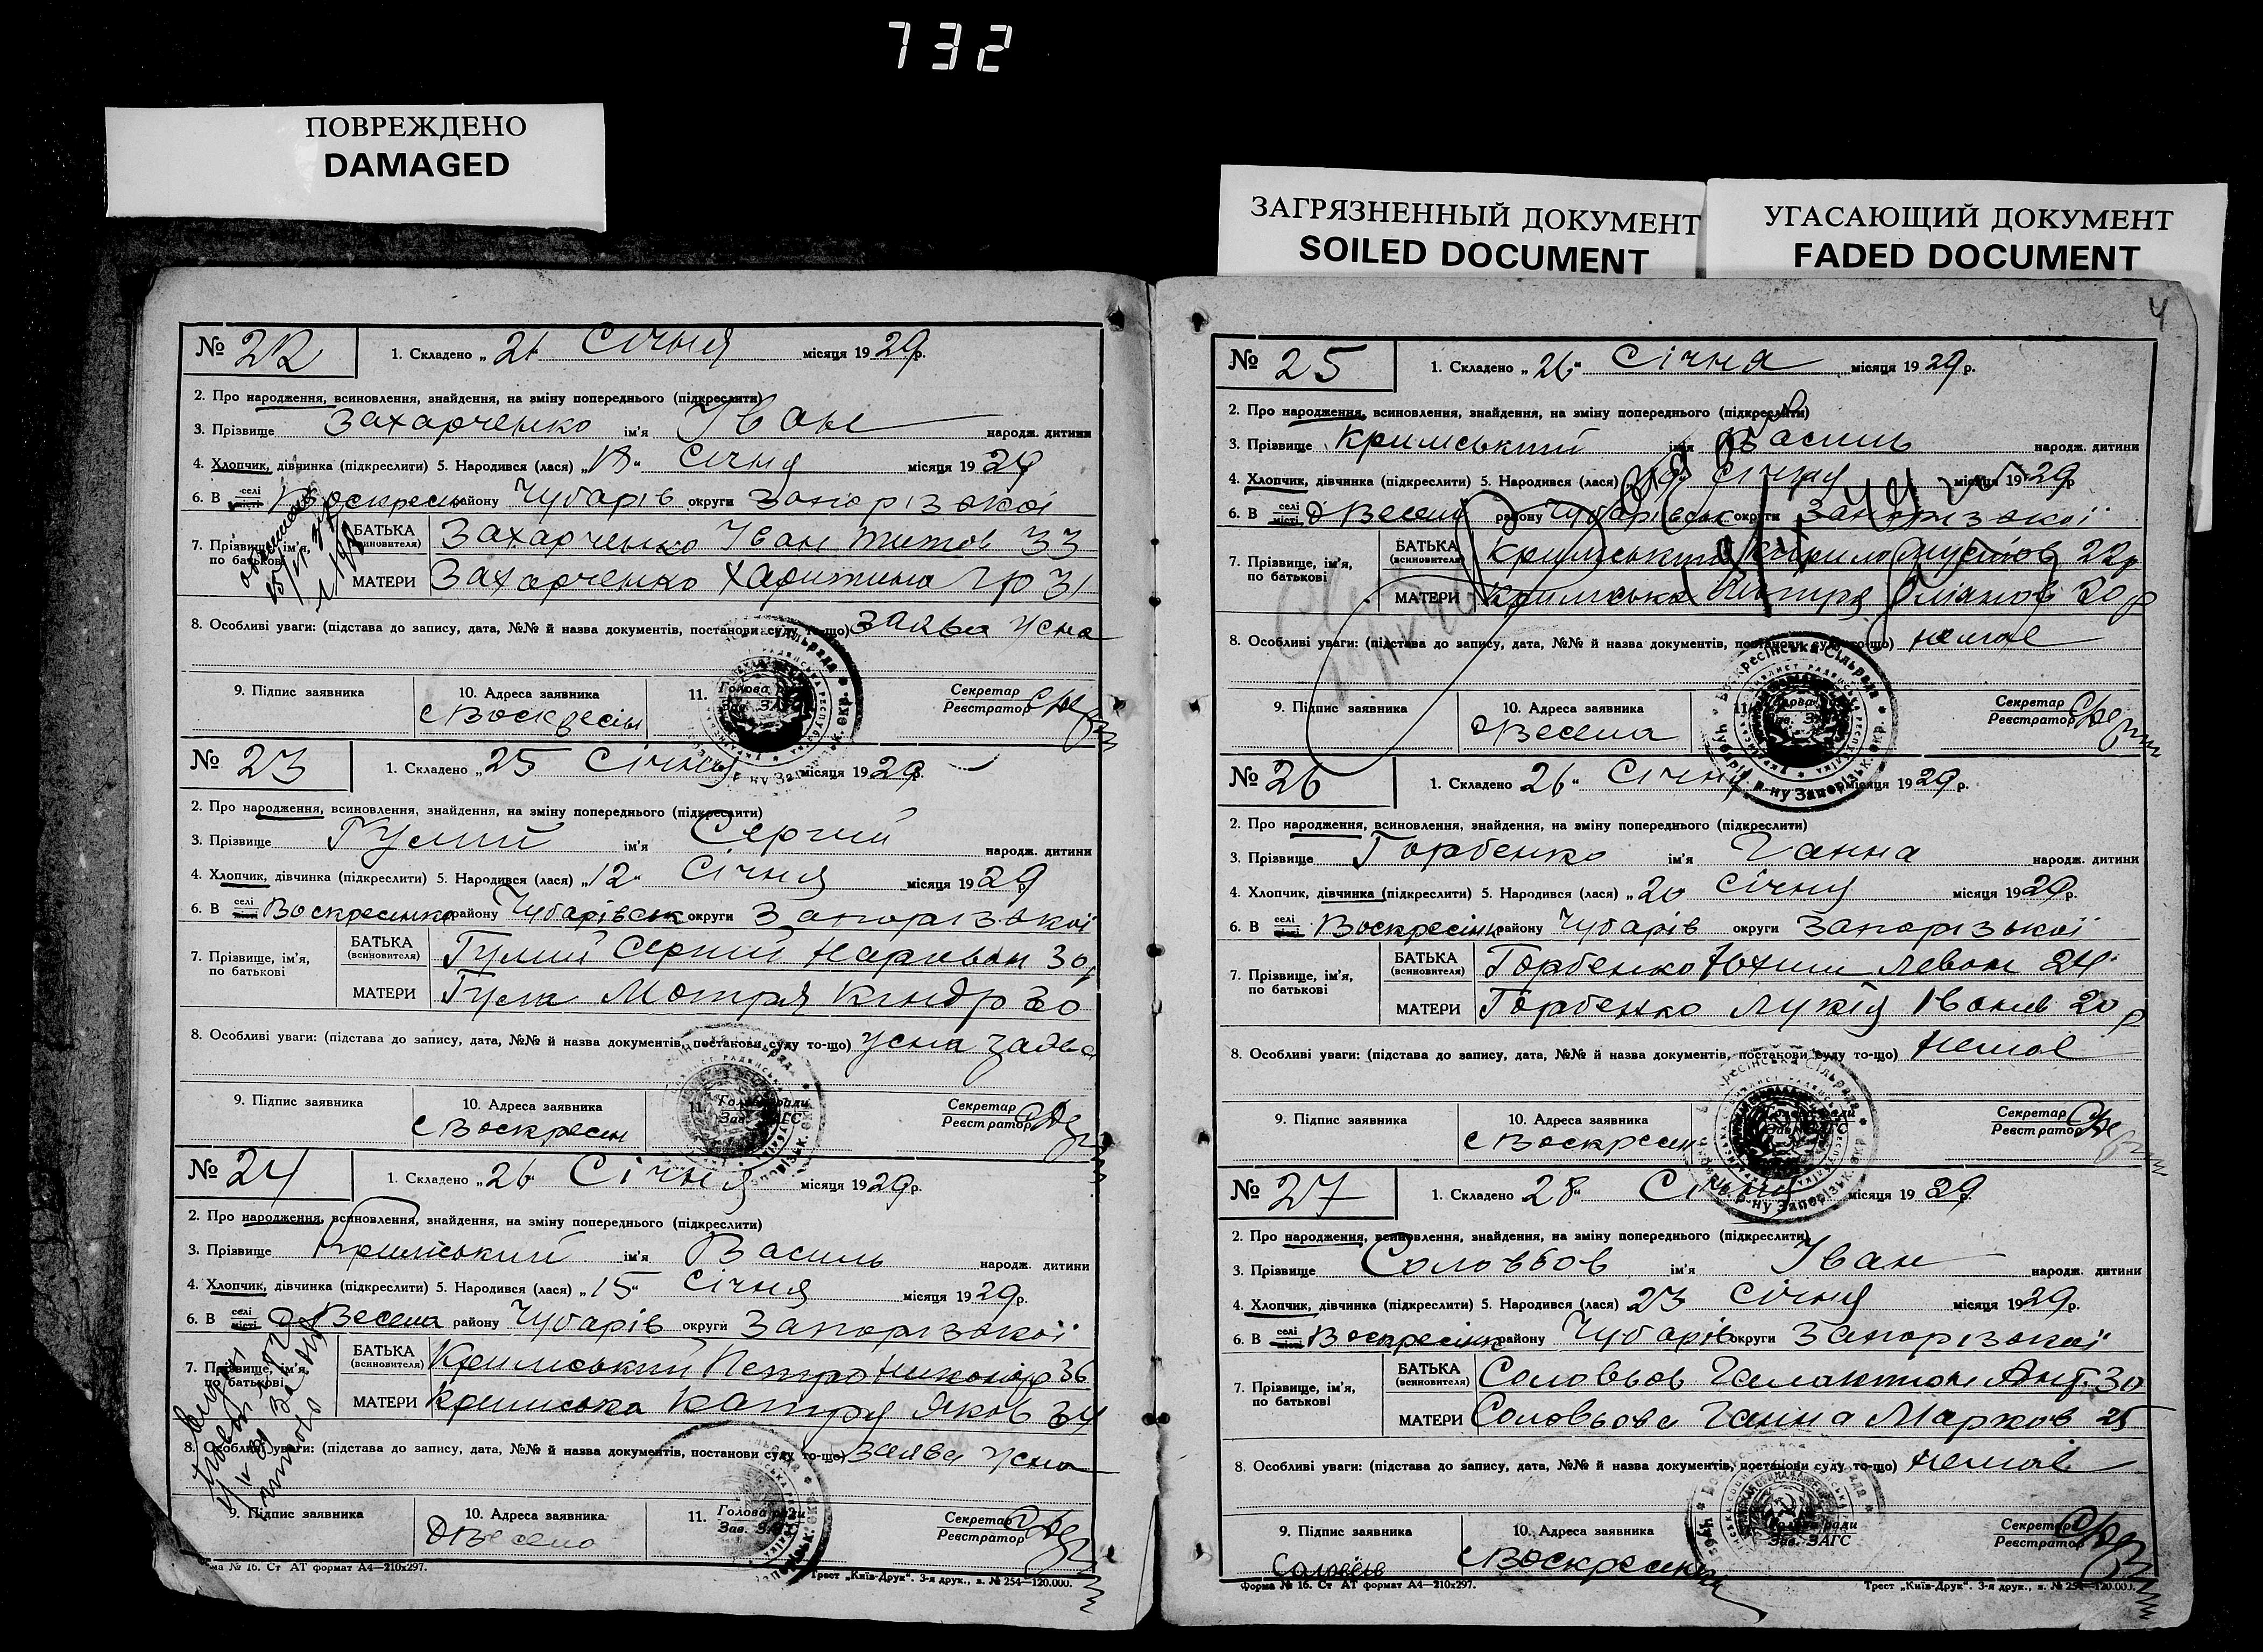 732
ПОВРЕЖДЕНО
DAMAGED
ЗАГРЯЗНЕННЫЙ ДОКУМЕНТ
SOILED DOCUMENT
УГАСАЮЩИЙ ДОКУМЕНТ
FADED DOCUMENT
№ 22
1. Складено „ 21 Січня місяця 1929р.
2. Про народження, всиновлення, знайдення, на зміну попереднього (підкреслити)
3. Прізвище Захарченко ім'я Іван народж. дитини
4. Хлопчик, дівчинка (підкреслити) 5. Народився (лася) „ “ Січня місяця 1929
6. В селі місті Воскресен району Чубарів округи Запорізької
7. Прізвище, ім'я, по батькові
БАТЬКА (всиновителя) Захарченко Іван Титов 33
МАТЕРИ Захарченко Харитина Гр 31
8. Особливі уваги: (підстава до запису, дата, №№ й назва документів, постанови суду то-що) Заява Усна
9. Підпис заявника
10. Адреса заявника
с Воскресін
11. Голова ради
Зав. ЗАГС
Секретар
Реєстратор
№ 23
1. Складено „25 Січня місяця 1929р.
2. Про народження, всиновлення, знайдення, на зміну попереднього (підкреслити)
3. Прізвище Гулий ім'я Сергий народж. дитини
4. Хлопчик, дівчинка (підкреслити) 5. Народився (лася) „12“ Січня місяця 1929р
6. В селі місті Воскресенка району Чубарівськ округи Запорізької
7. Прізвище, ім'я, по батькові
БАТЬКА (всиновителя) Гулий Сергий 30р
МАТЕРИ Гула Мотря Киндр 30
8. Особливі уваги: (підстава до запису, дата, №№ й назва документів, постанови суду то-що) Усна заява
9. Підпис заявника
10. Адреса заявника
с Воскресен
11. Голова ради
Зав. ЗАГС
Секретар
Реєстратор
№ 24
1. Складено „26“ Січня місяця 1929р.
2. Про народження, всиновлення, знайдення, на зміну попереднього (підкреслити)
3. Прізвище Кримський ім'я Василь народж. дитини
4. Хлопчик, дівчинка (підкреслити) 5. Народився (лася) „15“ Січня місяця 1929р.
6. В селі місті Д Весела району Чубарів округи Запорізької
7. Прізвище, ім'я, по батькові
БАТЬКА (всиновителя) Кримський Петро 36
МАТЕРИ Кримська Катря Яков 34
8. Особливі уваги: (підстава до запису, дата, №№ й назва документів, постанови суду то-що) Заява Усна
9. Підпис заявника
10. Адреса заявника
Д Весела
11. Голова ради
Зав. ЗАГС
Секретар
Реєстратор
Форма № 16. Ст АТ формат А4—210х297.
Трест „Київ-Друк“. 3-я друк., з. № 254—120.000.
4
№ 25
1. Складено „26“ Січня місяця 1929р.
2. Про народження, всиновлення, знайдення, на зміну попереднього (підкреслити)
3. Прізвище Кримський ім'я Василь народж. дитини
4. Хлопчик, дівчинка (підкреслити) 5. Народився (лася) Січня місяця 1929р
6. В селі місті Д Весела району Чубарівськ округи Запорізької
7. Прізвище, ім'я, по батькові
БАТЬКА (всиновителя) Кримський Кирило 22р
МАТЕРИ Кримська 20р
8. Особливі уваги: (підстава до запису, дата, №№ й назва документів, постанови суду то-що) немає
Воскресінська Сільрада
Чубарів. р-ну Запорізьк. окр.
9. Підпис заявника
10. Адреса заявника
Д Весела
11. Голова ради
Зав. ЗАГС
Секретар
Реєстратор
№ 26
1. Складено „ 26“ Січня місяця 1929р.
2. Про народження, всиновлення, знайдення, на зміну попереднього (підкреслити)
3. Прізвище Горбенко ім'я Ганна народж. дитини
4. Хлопчик, дівчинка (підкреслити) 5. Народився (лася) „20 Січня місяця 1929р.
6. В селі місті Воскресінк району Чубарів округи Запорізької
7. Прізвище, ім'я, по батькові
БАТЬКА (всиновителя) Горбенко Юхим Левон 24
МАТЕРИ Горбенко Лукія Іванів 20р
8. Особливі уваги: (підстава до запису, дата, №№ й назва документів, постанови суду то-що) немає
9. Підпис заявника
10. Адреса заявника
с Воскресен
11. Голова ради
Зав. ЗАГС
Секретар
Реєстратор
№ 27
1. Складено „ 28“ Січня місяця 1929р.
2. Про народження, всиновлення, знайдення, на зміну попереднього (підкреслити)
3. Прізвище Соловьов ім'я Іван народж. дитини
4. Хлопчик, дівчинка (підкреслити) 5. Народився (лася) 23 Січня місяця 1929р.
6. В селі місті Воскресінк району Чубарів округи Запорізької
7. Прізвище, ім'я, по батькові
БАТЬКА (всиновителя) Соловьов Галактион Анд. 30
МАТЕРИ Соловьова Ганна Марков 25
8. Особливі уваги: (підстава до запису, дата, №№ й назва документів, постанови суду то-що) немає
9. Підпис заявника
Соловьов
10. Адреса заявника
с Воскресенка
11. Голова ради
Зав. ЗАГС
Секретар
Реєстратор
Форма № 16. Ст АТ формат А4—210х297.
Трест „Київ-Друк“. 3-я друк., з. № 254—120.000.